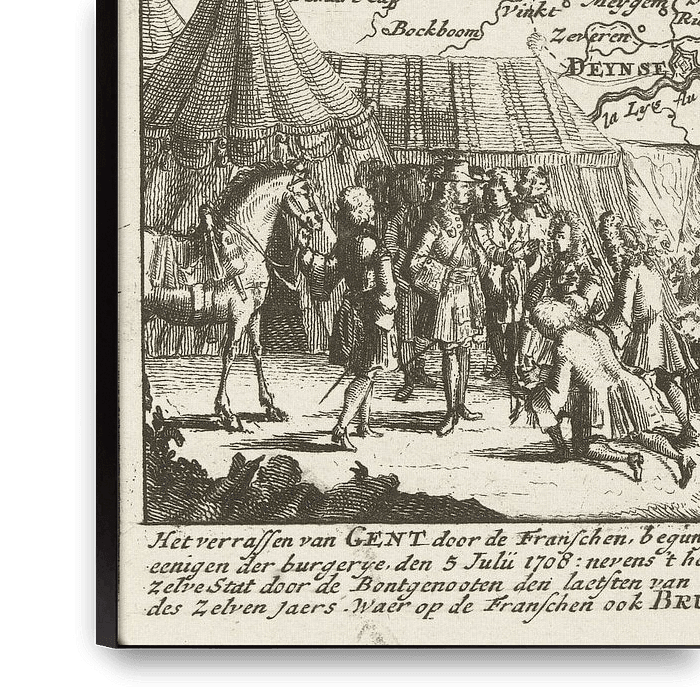 Bockboom
Vinkt
Meygem
Zeveren
DEYNSE
la Lys flu
Het verrassen van GENT door de Franschen, begun
eenigen der burgerye, den 5 Julii 1708: nevens 't
zelve Stat door de Bontgenooten den laetsten van
des Zelven Jaers. Waer op de Franschen ook BRU